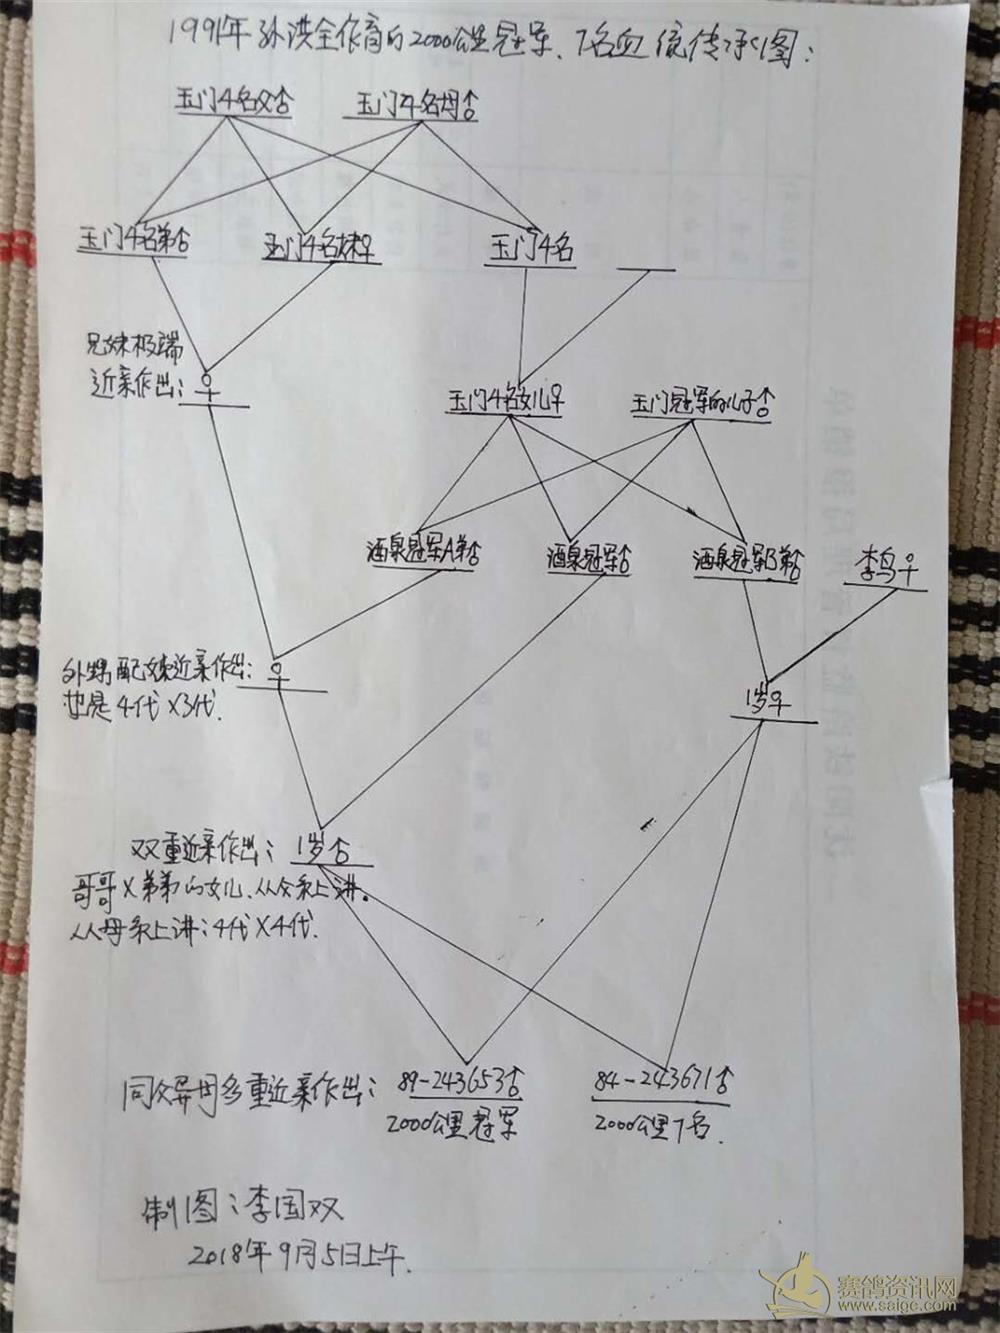 1991年孙洪全作育的2000公里冠军、7名血统传承图：
玉门4名父♂ 玉门4名母♂
玉门4名弟♂ 玉门4名妹♀ 玉门4名
兄妹极端
近亲作出：♀
玉门4名女儿♀ 玉门冠军的儿子♂
酒泉冠军A弟♂ 酒泉冠军♂ 酒泉冠军B弟♂ 李鸟♀
外甥配妹近亲作出：♀
也是4代X3代.
1岁♀
双重近亲作出：1岁♂
哥哥X弟弟的女儿、从父系上讲。
从母系上讲：4代X4代.
同父异母多重近亲作出：89-243653♂ 84-243671♂
2000公里冠军 2000公里7名.
制图：李国双
2018年9月5日上午.
赛鸽资讯网
www.saigc.com